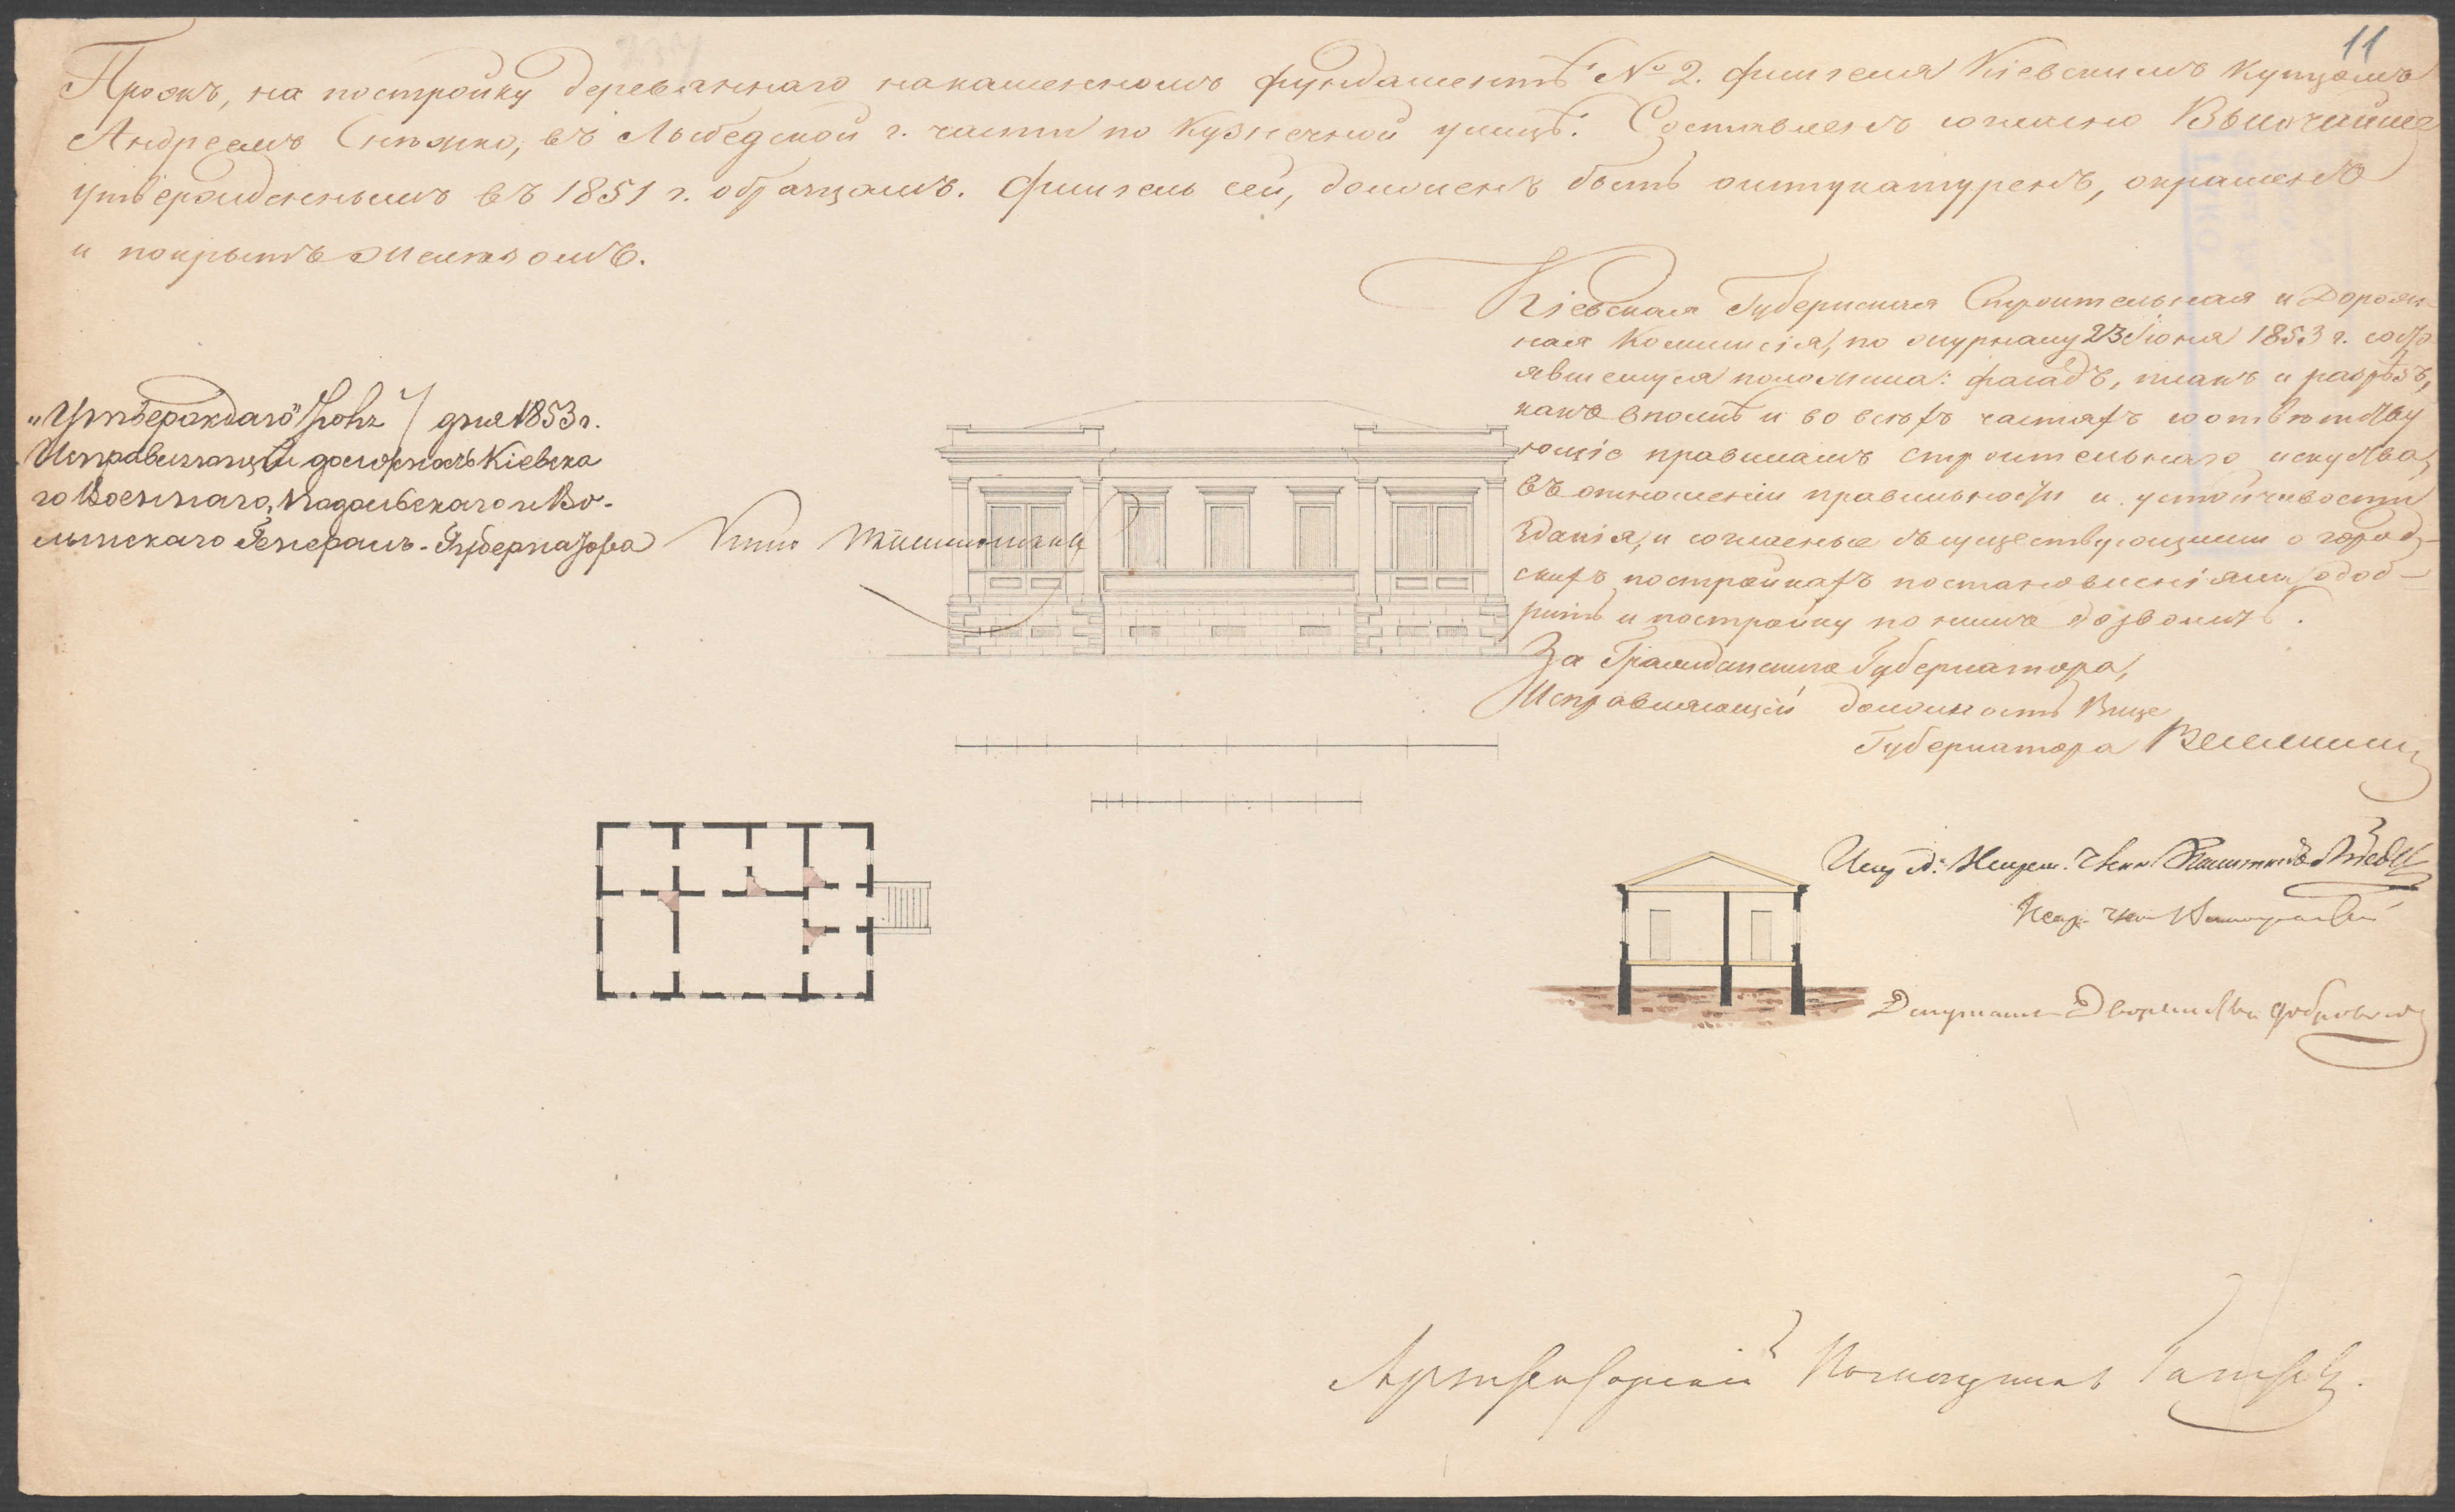 11
Проэкъ, на постройку деревяннаго накаменномъ фундаментѣ № 2. флигеля Кіевскимъ Купцомъ
Андреемъ Снѣжко, въ Лыбедской г. части по Кузнечной улицѣ. Составленъ согласно Высочайше
утвержденнымъ въ 1851 г. образцамъ. Флигель сей, долженъ быть оштукатуренъ, окрашенъ
и покрытъ желѣзомъ.
Кіевская Губернская Строительная и Дорож-
ная Коммисія, по журналу 23 Іюня 1853 г. состо
явшемуся положила: фасадъ, планъ и разрѣзъ,
какъ вполнѣ и во всѣхъ частяхъ соотвѣтству
ющіе правиламъ строительнаго искуства,
въ отношеніи правильности и устойчивости
зданія, и согласные съ существующими о город-
скихъ постройкахъ постановленіями, одоб-
рить и постройку по нимъ дозволить.
За Гражданскаго Губернатора,
Исправляющій должность Вице
Губернатора
„Утверждаю" дня 1853 г.
Исправляющій должность Кіевска
го Военнаго, Подольскаго и Во-
лынскаго Генералъ-Губернатора
Депутатъ Дворянства
Архитекторскій Помощникъ